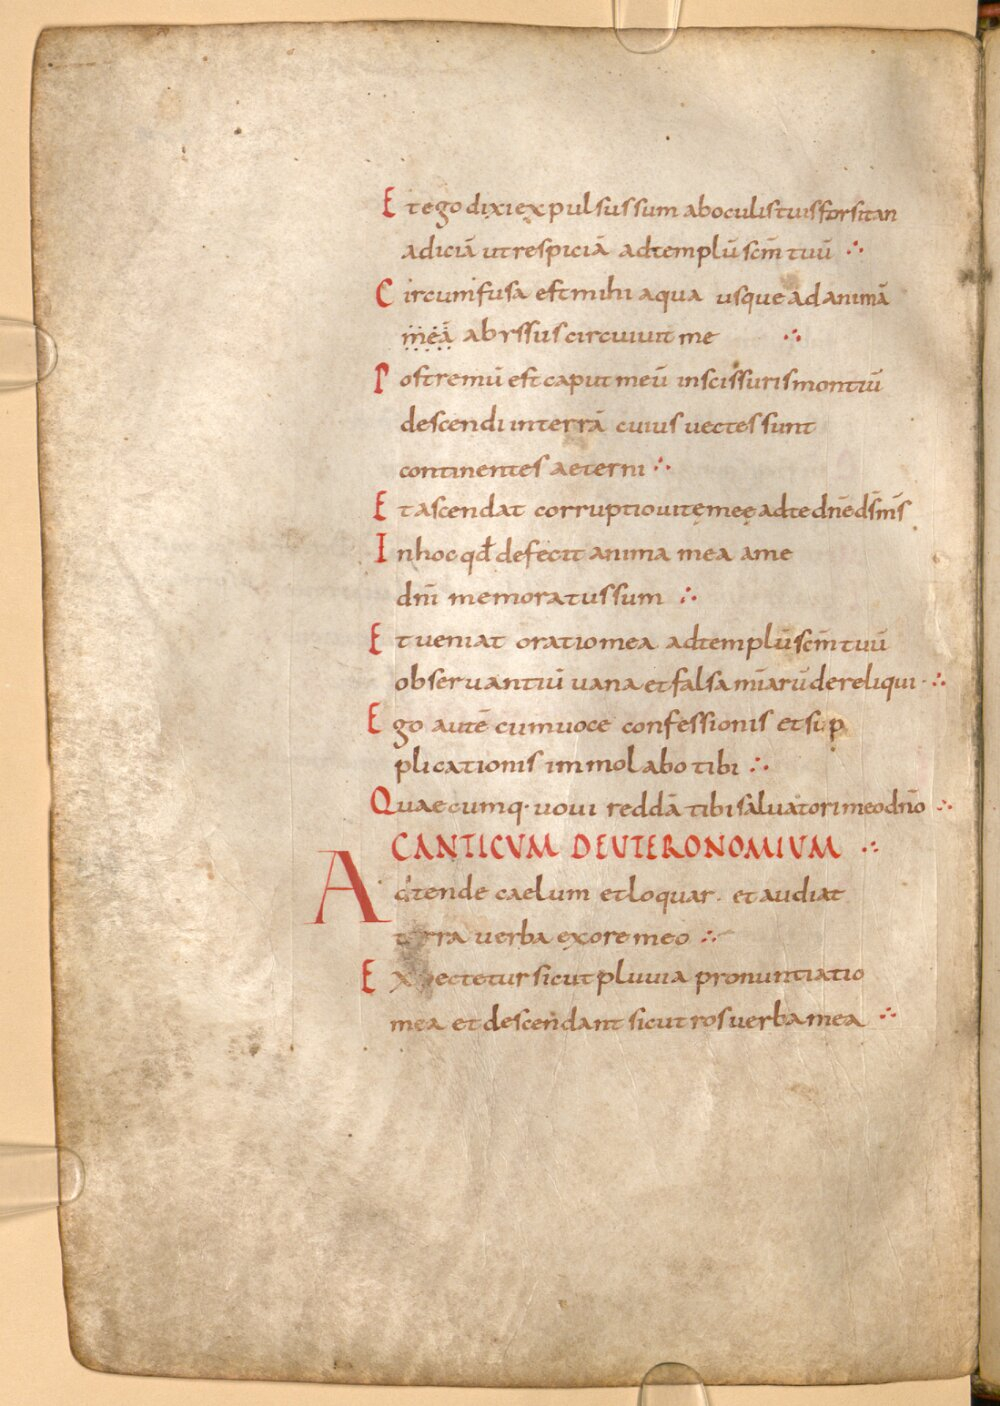 Et ego dixi expulsus sum ab oculis tuis forsitan
adiciā ut respiciā ad templū scm̄ tuū ∴
Circumfusa est mihi aqua usque ad animā
meā abyssus circuiuit me ∴
Postremū est caput meū in scissuris montiū
descendi in terrā cuius uectes sunt
continentes aeterni ∴
Et ascendat corruptio uitę meę ad te dn̄e ds̄ ms̄
In hoc qđ defecit anima mea a me
dn̄i memoratus sum ∴
Et ueniat oratio mea ad templū scm̄ tuū
obseruantiū uana et falsa miāru dereliqui · ∴
Ego autē cum uoce confessionis et sup
plicationis immolabo tibi ∴
Quaecumq· uoui reddā tibi saluatori meo dn̄o ∴
CANTICVM DEUTERONOMIVM ∴
Adtende caelum et loquar · et audiat
terra uerba ex ore meo ∴
Expectetur sicut pluuia pronuntiatio
mea et descendant sicut ros uerba mea ∴